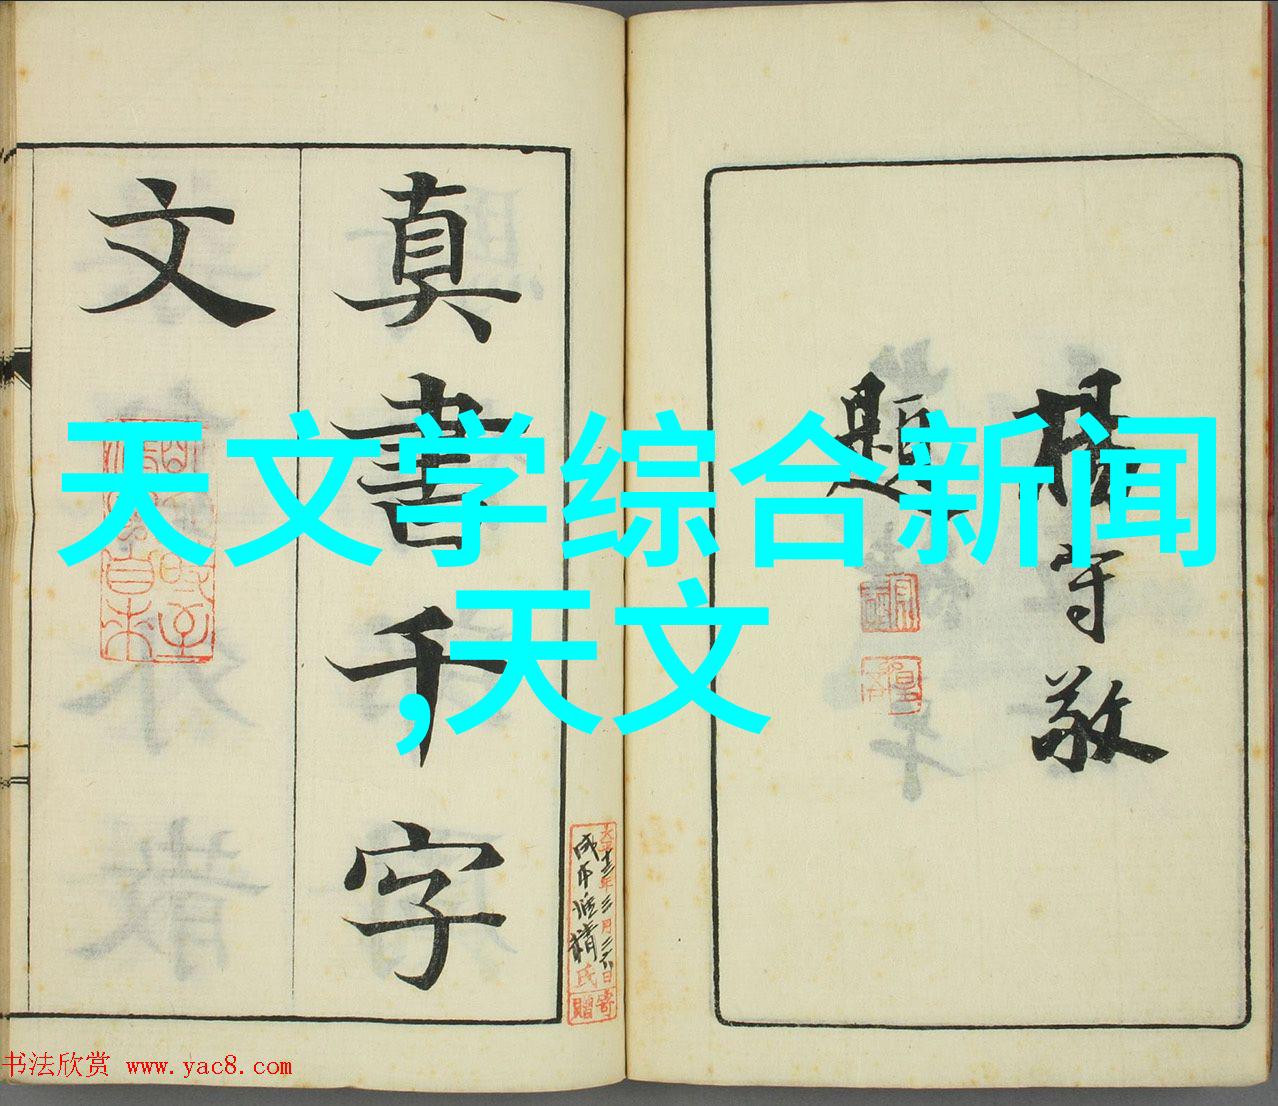 天文学综合新闻
,天文
楊守敬
題
真書千字
文
书法欣赏 www.yac8.com